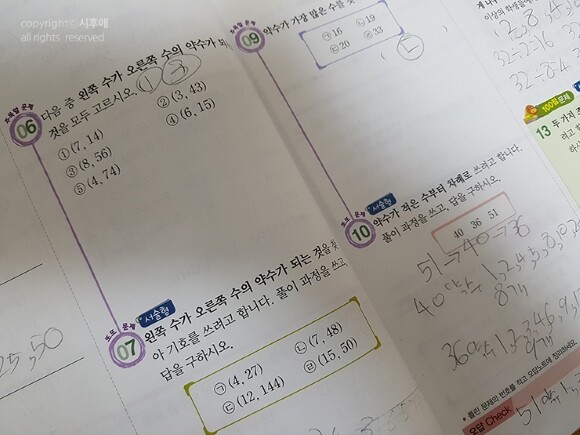 copyright©시후에
all rights reserved
또또할 문제
06 다음 중 왼쪽 수가 오른쪽 수의 약수가 되
것을 모두 고르시오. ① ③
① (7, 14)
② (3, 43)
③ (8, 56)
④ (6, 15)
⑤ (4, 74)
또또 문제
07 서술형
왼쪽 수가 오른쪽 수의 약수가 되는 것을 찾
아 기호를 쓰려고 합니다. 풀이 과정을 쓰고,
답을 구하시오.
㉠ (4, 27)
㉡ (7, 48)
㉢ (12, 144)
㉣ (15, 50)
25, 50
09 약수가 가장 많은 수를 찾
㉠ 16
㉡ 19
㉢ 20
㉣ 33
㉢
또또 문제
10 서술형
약수가 적은 수부터 차례로 쓰려고 합니다.
풀이 과정을 쓰고, 답을 구하시오.
40 36 51
51→40→36
40 약수 1, 2, 4, 5, 8, 10, 20
8개
이상의 학생들에
32÷2=16
32÷8=4
100점 문제
13 두 가지
려고
하시
틀린 문제의 번호를 적고 오답노트에 정리하세요.
오답 Check